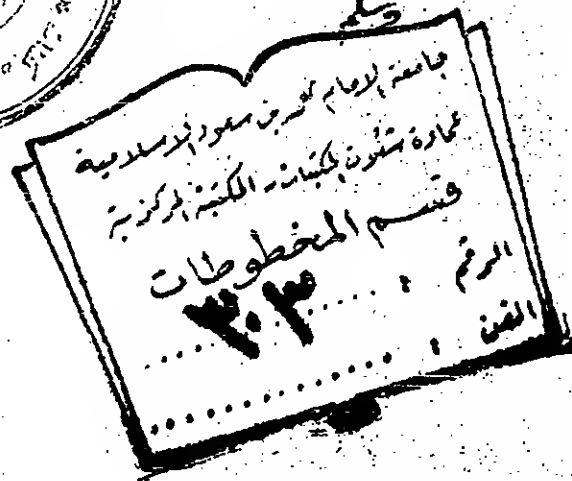 وسلم
جامعة الإمام محمد بن سعود الإسلامية
عمادة شئون المكتبات - المكتبة المركزية
قسم المخطوطات
الرقم : ٣٠٣
الفن :